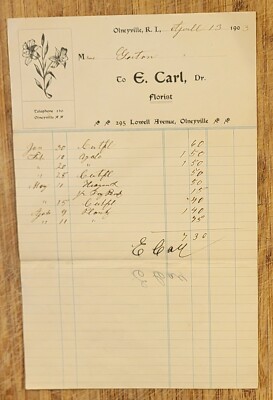 Olneyville, R. I., April 13 190
M Gorton
To E. Carl, Dr.
Florist
Telephone
Olneyville, R. I.
295 Lowell Avenue, Olneyville
Jan 30 Cut fl 60
Feb 10 1 50
" 20 " 1 50
" 25 Cut fl 50
May 11 Hyacinth 50
" 25 Cut fl 40
Apr 9 Plants 1 40
" 11 " 35
7 30
E Carl